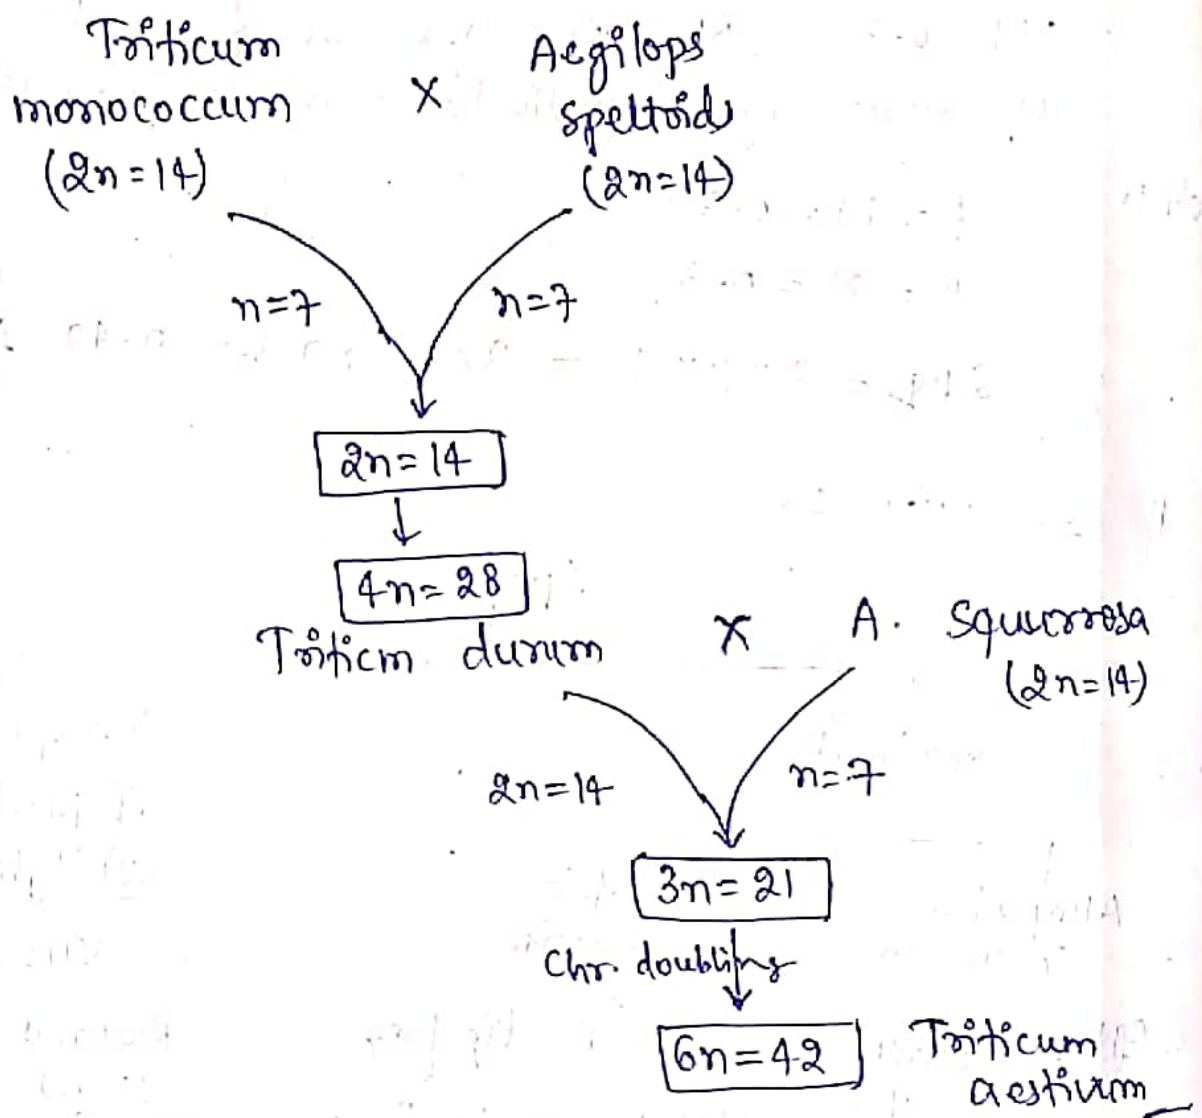 Triticum
monococcum
(2n=14)
X
Aegilops
Speltoids
(2n=14)
n=7
n=7
2n=14
4n=28
Triticm durum
X
A. Squarrosa
(2n=14)
2n=14
n=7
3n=21
Chr. doubling
6n=42
Triticum
aestivum